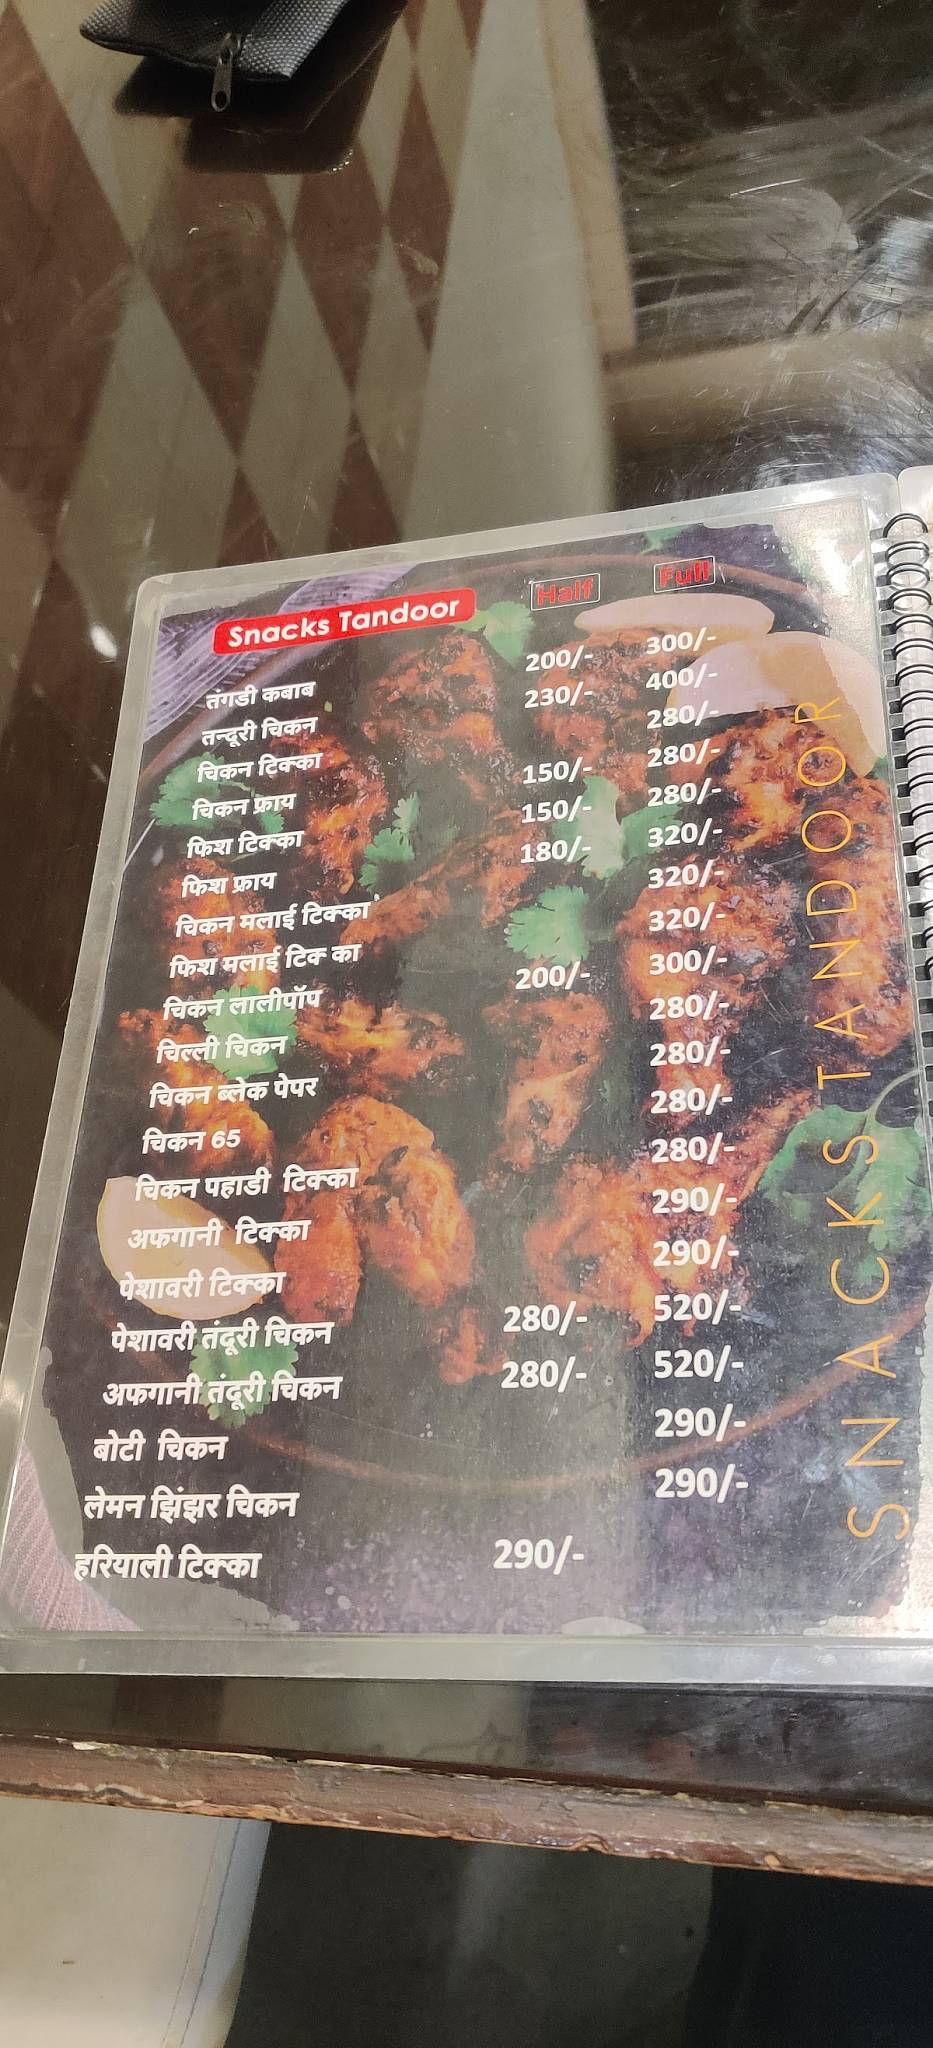 Snacks Tandoor Half Full
तंगडी कबाब 200/- 300/-
तन्दूरी चिकन 230/- 400/-
चिकन टिक्का 280/-
चिकन फ्राय 150/- 280/-
फिश टिक्का 150/- 280/-
फिश फ्राय 180/- 320/-
चिकन मलाई टिक्का 320/-
फिश मलाई टिक का 320/-
चिकन लालीपॉप 200/- 300/-
चिल्ली चिकन 280/-
चिकन ब्लेक पेपर 280/-
चिकन 65 280/-
चिकन पहाडी टिक्का 280/-
अफगानी टिक्का 290/-
पेशावरी टिक्का 290/-
पेशावरी तंदूरी चिकन 280/- 520/-
अफगानी तंदूरी चिकन 280/- 520/-
बोटी चिकन 290/-
लेमन झिंझर चिकन 290/-
हरियाली टिक्का 290/-
SNACKS TANDOOR